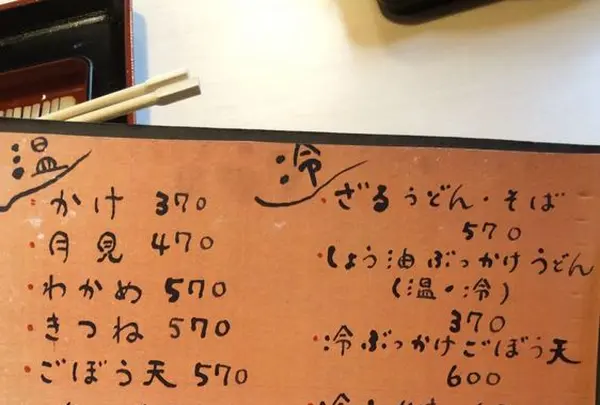 温
・かけ 370
・月見 470
・わかめ 570
・きつね 570
・ごぼう天 570
冷
・ざるうどん・そば
570
・しょう油ぶっかけうどん
(温・冷)
370
・冷ぶっかけごぼう天
600